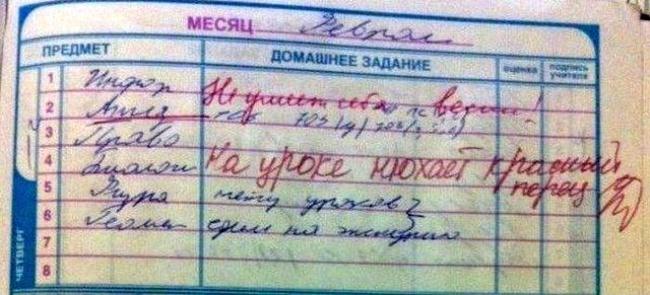 МЕСЯЦ Феврал
ПРЕДМЕТ ДОМАШНЕЕ ЗАДАНИЕ оценка подпись учителя
1 Инфор Не умеет себя вести!
2 Англ
3 Право
4 Биологи На уроке нюхает красный
5 Физра нету уроков перец
6 Геомет
7
8
ЧЕТВЕРГ